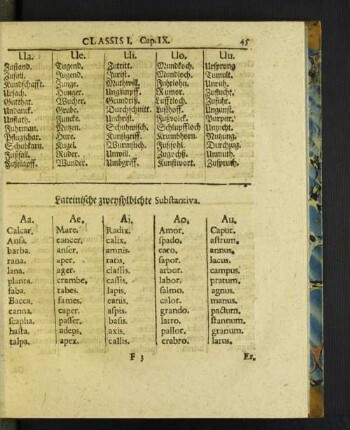 CLASSIS I. Cap. IX. 45
Ua. Ue. Ui. Uo. Uu.
Zustand. Tugend. Zutritt. Mundkoch. Ursprung
Zusatz. Jugend. Jurist. Mundloch. Tumult.
Kundschafft. Zunge. Muthwill. Fuhrlohn. Unruh.
Ursach. Hunger. Rumor. Zuflucht.
Gutthat. Wucher. Grundriß. Lufftloch. Zufuhr.
Undanck. Grube. Durchschnitt. Ungunst.
Unflath. Juncker. Unchrist. Fußvolck. Purpur.
Fuhrman. Schuhwisch. Schlupffloch Unzucht.
Hure. Krumbhorn.
Schubkarn. Kugel. Fußsohl. Durchzug.
Fußfall. Ruder. Unwill. Unmuth.
Wunder. Kunstwort. Zuspruch.
Lateinische zweysylbichte Substantiva.
Aa. Ae. Ai. Ao. Au.
Calcar. Mare. Radix. Amor. Caput.
Ansa. cancer. calix. spado. astrum.
barba. anser. amnis. caro. annus.
rana. aper. ratis. sapor. lacus.
lana. ager. classis. arbor. campus.
planta. crambe. cassis. labor. pratum.
faba. tabes. lapis. salmo. agnus.
Bacca. fames. canis. calor. manus.
canna. caper. aspis. grando. pactum.
scapha. passer. basis. latro. stannum.
hasta. adeps. axis. pallor. granum.
talpa. apex. callis. crabro. latus.
F 3 Er.